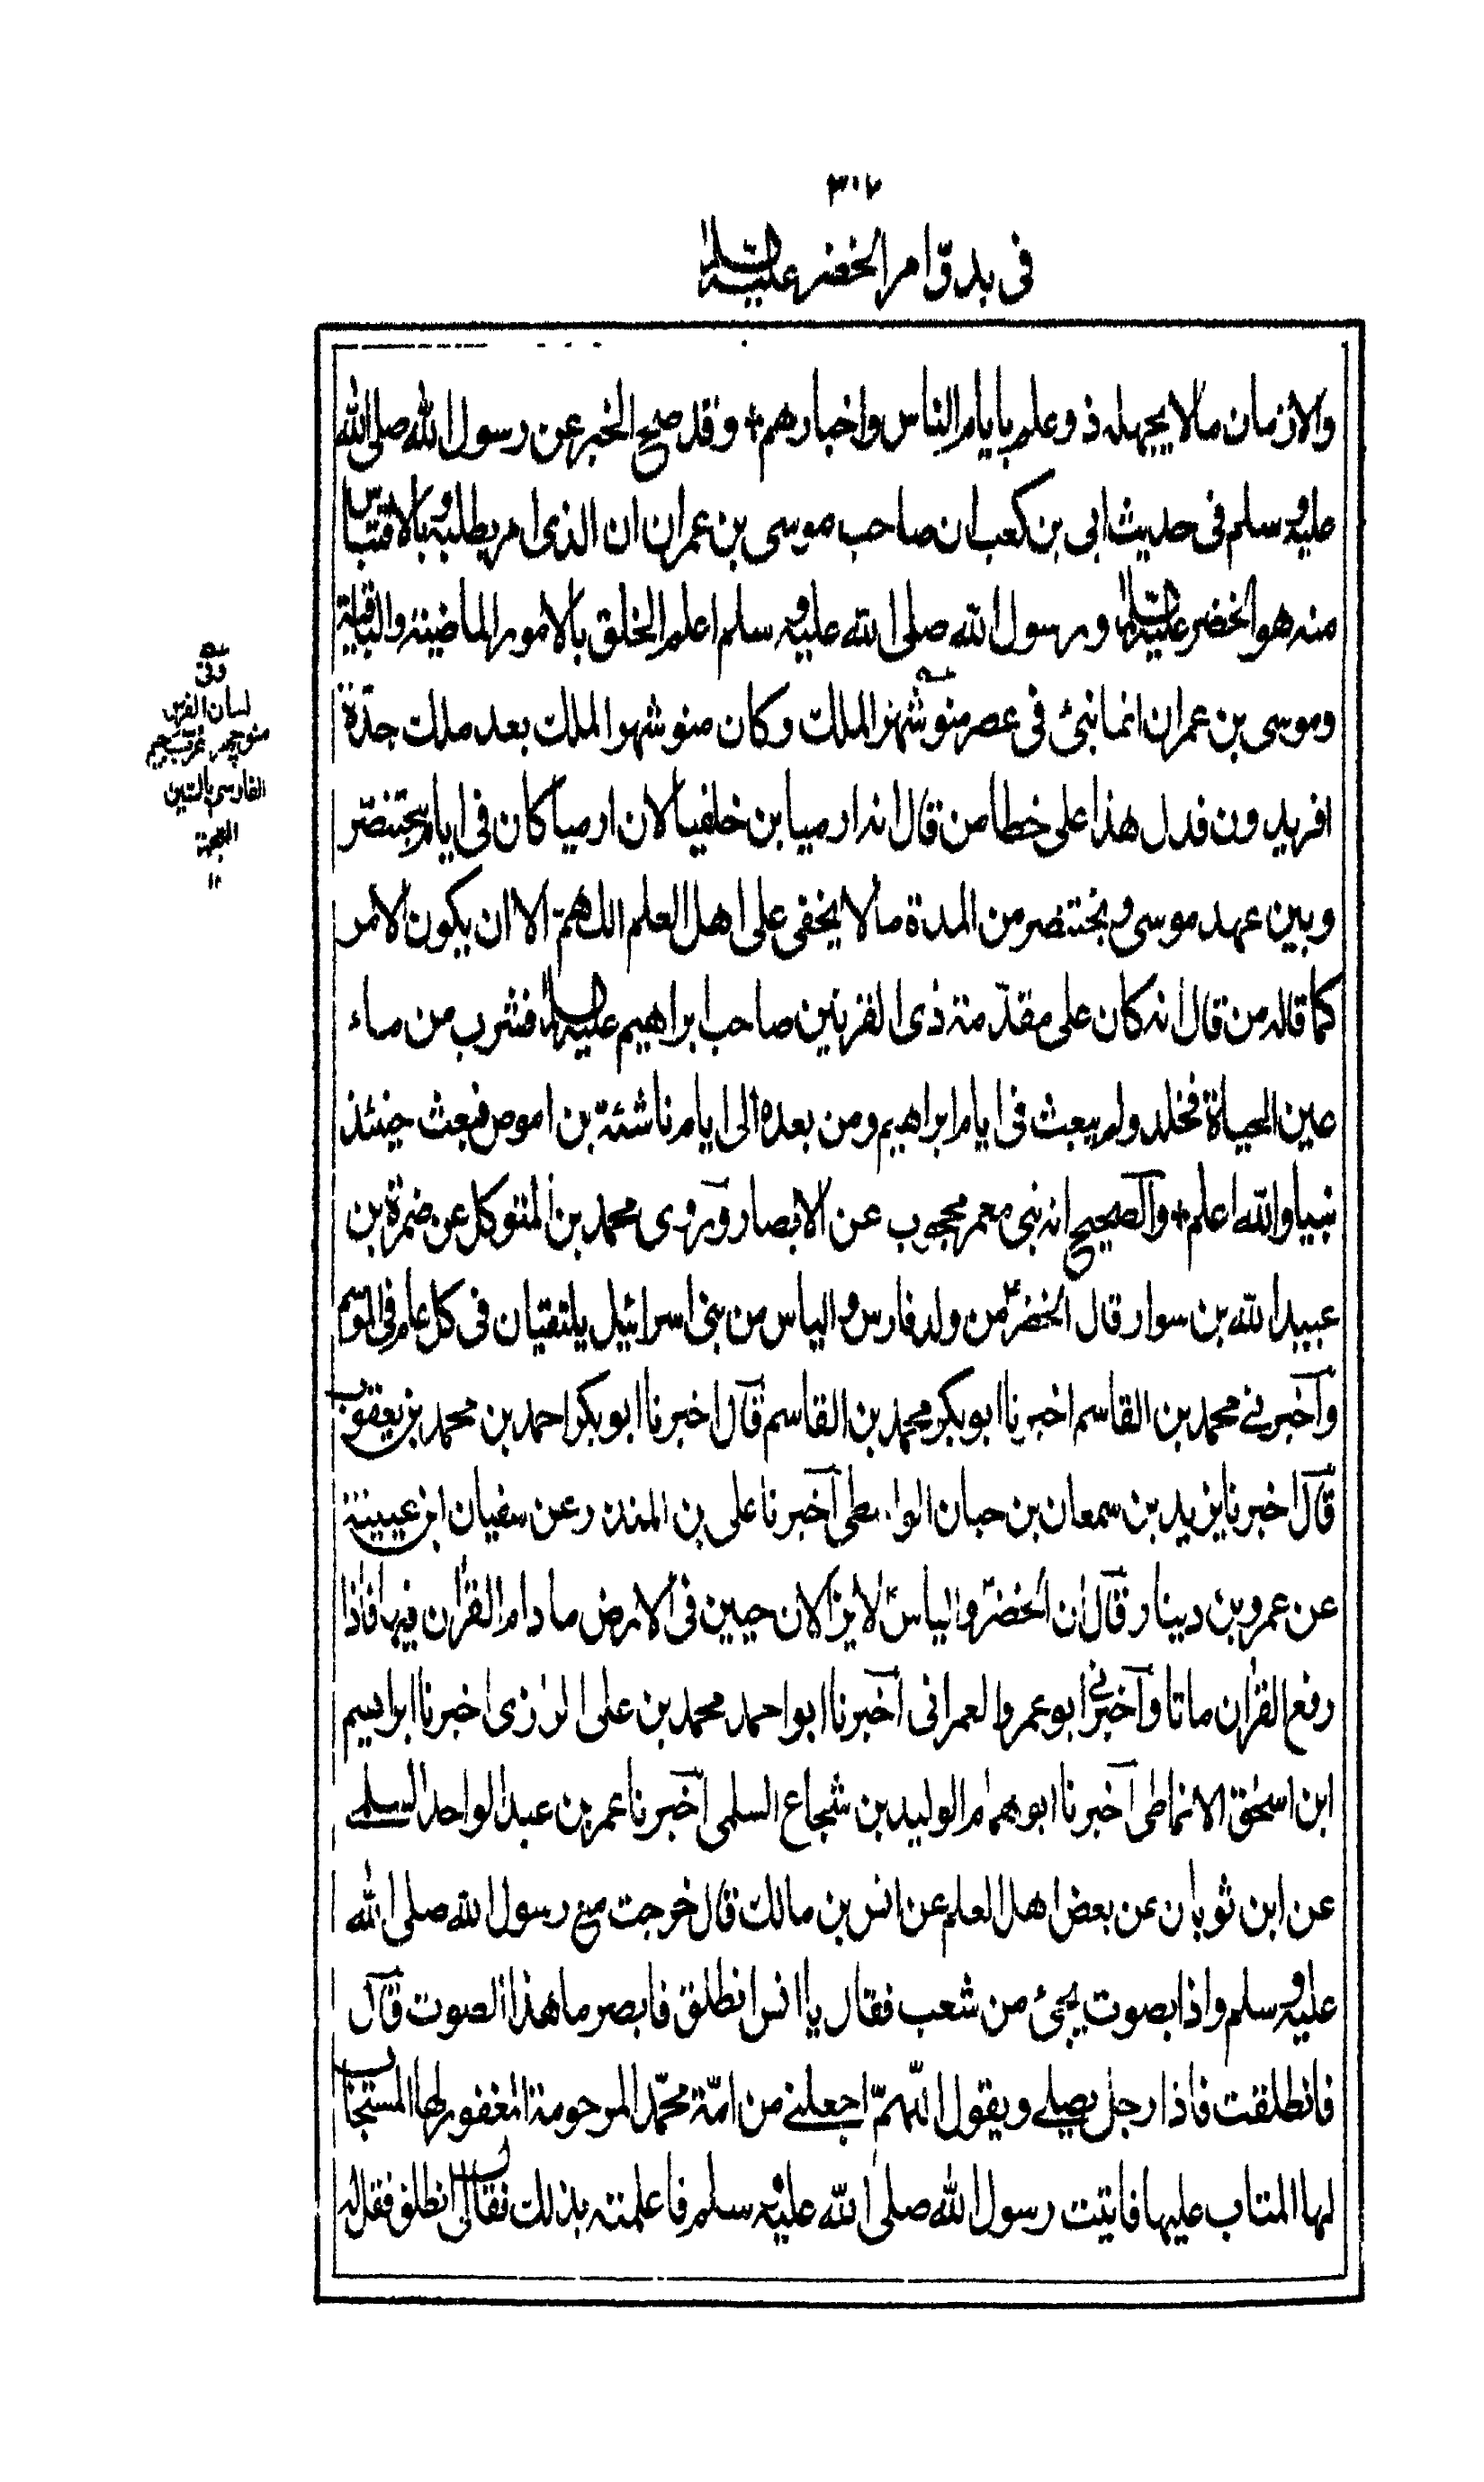 ٣٠٧
فى بدوّ امر الخضر عليه السلام
والازمان مالا يجهله ذو علم بايام الناس واخبارهم + وقد صح الخبر عن رسول الله صلى الله
عليه وسلم فى حديث ابى بن كعب ان صاحب موسى بن عمران ان الذى امر بطلبه وبالاقتباس
منه هو الخضر عليه السلام ورسول الله صلى الله عليه وسلم اعلم الخلق بالامور الماضية والباقية
وموسى بن عمران انما نبئ فى عصر منوشهر الملك وكان منوشهر الملك بعد ملك جدّه
افريدون فدل هذا على خطا من قال انه ارميا بن خلفيا لان ارميا كان فى ايام بختنصّر
وبين عهد موسى وبختنصر من المدة مالا يخفى على اهل العلم اللهمّ الا ان يكون الامر
كما قاله من قال انه كان على مقدّمة ذى القرنين صاحب ابراهيم عليه السلام فشرب من ماء
عين الحياة فخلد ولم يبعث فى ايام ابراهيم ومن بعده الى ايام ناشئة بن اموص فبعث حينئذ
نبيا والله اعلم + والصحيح انه نبى معمر محجوب عن الابصار وروى محمد بن المتوكل عن ضمرة بن
عبيد الله بن سوار قال الخضرؑ من ولد فارس والياس من بنى اسرائيل يلتقيان فى كل عام فى الموسم
واخبرنے محمد بن القاسم اخبرنا ابو بكر محمد بن القاسم قال اخبرنا ابو بكر احمد بن محمد بن يعقوب
قال اخبرنا يزيد بن سمعان بن حبان الواسطى اخبرنا على بن المنذر عن سفيان ابن عيينة
عن عمرو بن دينار قال ان الخضرؑ والياسؑ لا يزالان حيين فى الارض ما دام القرآن فيها فاذا
رفع القرآن ماتا واخبرنے ابو عمرو العمرانى اخبرنا ابو احمد محمد بن على الرازى اخبرنا ابراهيم
ابن اسحٰق الانماطى اخبرنا ابو همام الوليد بن شجاع السلمى اخبرنا عمر بن عبد الواحد السلمے
عن ابن ثوبان عن بعض اهل العلم عن انس بن مالك قال خرجت مع رسول الله صلى الله
عليه وسلم واذا بصوت يجئ من شعب فقال يا انس انطلق فابصر ما هذا الصوت قال
فانطلقت فاذا رجل يصلے ويقول اللّهمّ اجعلنے من امّة محمّد المرحومة المغفور لها المستجاب
لها المتاب عليها فاتيت رسول الله صلى الله عليه وسلم فاعلمته بذلك فقال لى انطلق فقل له
وفى
لسان الفرس
منوچهر عرّب جيم
الفارسى بالشين
المعجمة
١٢